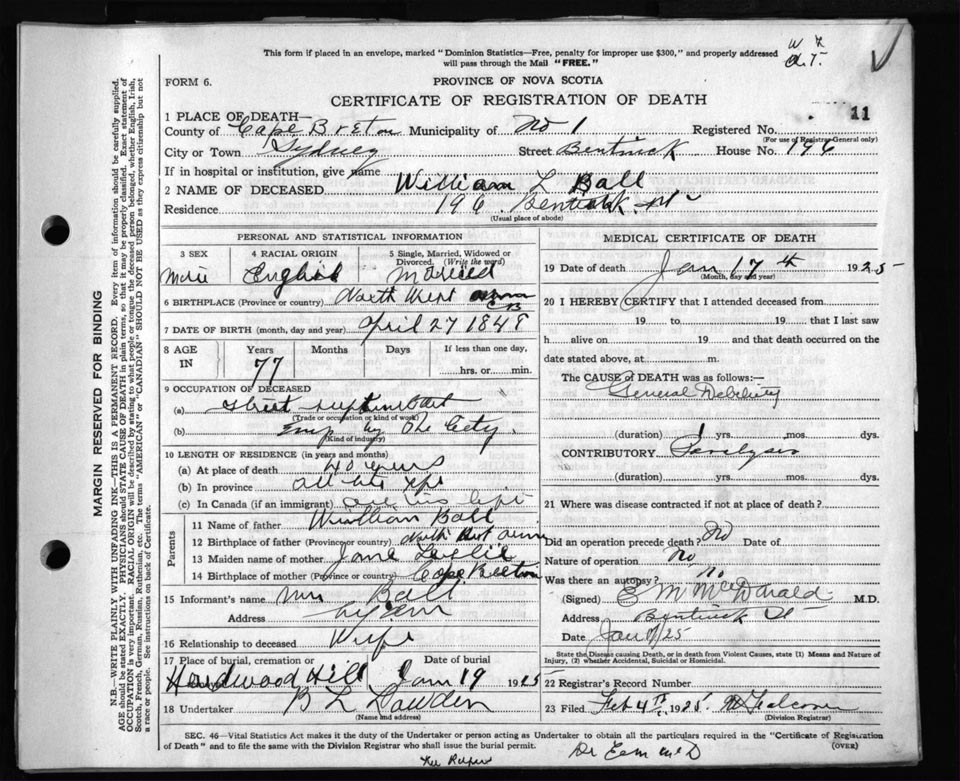 This form if placed in an envelope, marked "Dominion Statistics—Free, penalty for improper use $300," and properly addressed
will pass through the Mail "FREE."
FORM 6.
PROVINCE OF NOVA SCOTIA
CERTIFICATE OF REGISTRATION OF DEATH
11
1 PLACE OF DEATH—
County of Cape Breton Municipality of No 1 Registered No.
(For use of Registrar-General only)
City or Town Sydney Street Bentinck House No. 196
If in hospital or institution, give name
2 NAME OF DECEASED William L Ball
Residence 196 Bentinck St
(Usual place of abode)
PERSONAL AND STATISTICAL INFORMATION
3 SEX
4 RACIAL ORIGIN English
5 Single, Married, Widowed or Divorced. (Write the word) Married
6 BIRTHPLACE (Province or country) North West C B
7 DATE OF BIRTH (month, day and year) April 27 1848
8 AGE IN Years 77 Months Days If less than one day, hrs. or min.
9 OCCUPATION OF DECEASED
(a) Street
(Trade or occupation or kind of work)
(b) Emp by The City
(Kind of industry)
10 LENGTH OF RESIDENCE (in years and months)
(a) At place of death 40 years
(b) In province all his life
(c) In Canada (if an immigrant) all his life
Parents
11 Name of father William Ball
12 Birthplace of father (Province or country) North West
13 Maiden name of mother Jane Leslie
14 Birthplace of mother (Province or country) Cape Breton
15 Informant's name Mrs Ball
Address Sydney
16 Relationship to deceased Wife
17 Place of burial, cremation or Date of burial
Hardwood Hill Jan 19 1925
18 Undertaker B L Dowden
(Name and address)
MEDICAL CERTIFICATE OF DEATH
19 Date of death Jan 17th 1925
(Month, day and year)
20 I HEREBY CERTIFY that I attended deceased from
19 to 19 that I last saw
h alive on 19 and that death occurred on the
date stated above, at m.
The CAUSE of DEATH was as follows:—
General Debility
(duration) 1 yrs. mos. dys.
CONTRIBUTORY Paralysis
(duration) yrs. mos. dys.
21 Where was disease contracted if not at place of death?
Did an operation precede death? No Date of
Nature of operation No
Was there an autopsy? no
(Signed) E M McDonald M.D.
Address Bentinck St
Date Jan /25
State the Disease causing Death, or in death from Violent Causes, state (1) Means and Nature of
Injury, (2) whether Accidental, Suicidal or Homicidal.
22 Registrar's Record Number
23 Filed Feb 4th 1925. Falconer
(Division Registrar)
SEC. 46—Vital Statistics Act makes it the duty of the Undertaker or person acting as Undertaker to obtain all the particulars required in the "Certificate of Registration
of Death" and to file the same with the Division Registrar who shall issue the burial permit.
(OVER)
MARGIN RESERVED FOR BINDING
N.B.—WRITE PLAINLY WITH UNFADING INK—THIS IS A PERMANENT RECORD. Every item of information should be carefully supplied.
AGE should be stated EXACTLY. PHYSICIANS should STATE CAUSE OF DEATH in plain terms, so that it may be properly classified. Exact statement of
OCCUPATION is very important. RACIAL ORIGIN will be described by stating to what people or tongue the deceased person belonged, whether English, Irish,
Scotch, French, German, Russian, Ruthenian, etc. The terms "AMERICAN" or "CANADIAN" SHOULD NOT BE USED as they express citizenship but not
a race or people. See instructions on back of Certificate.